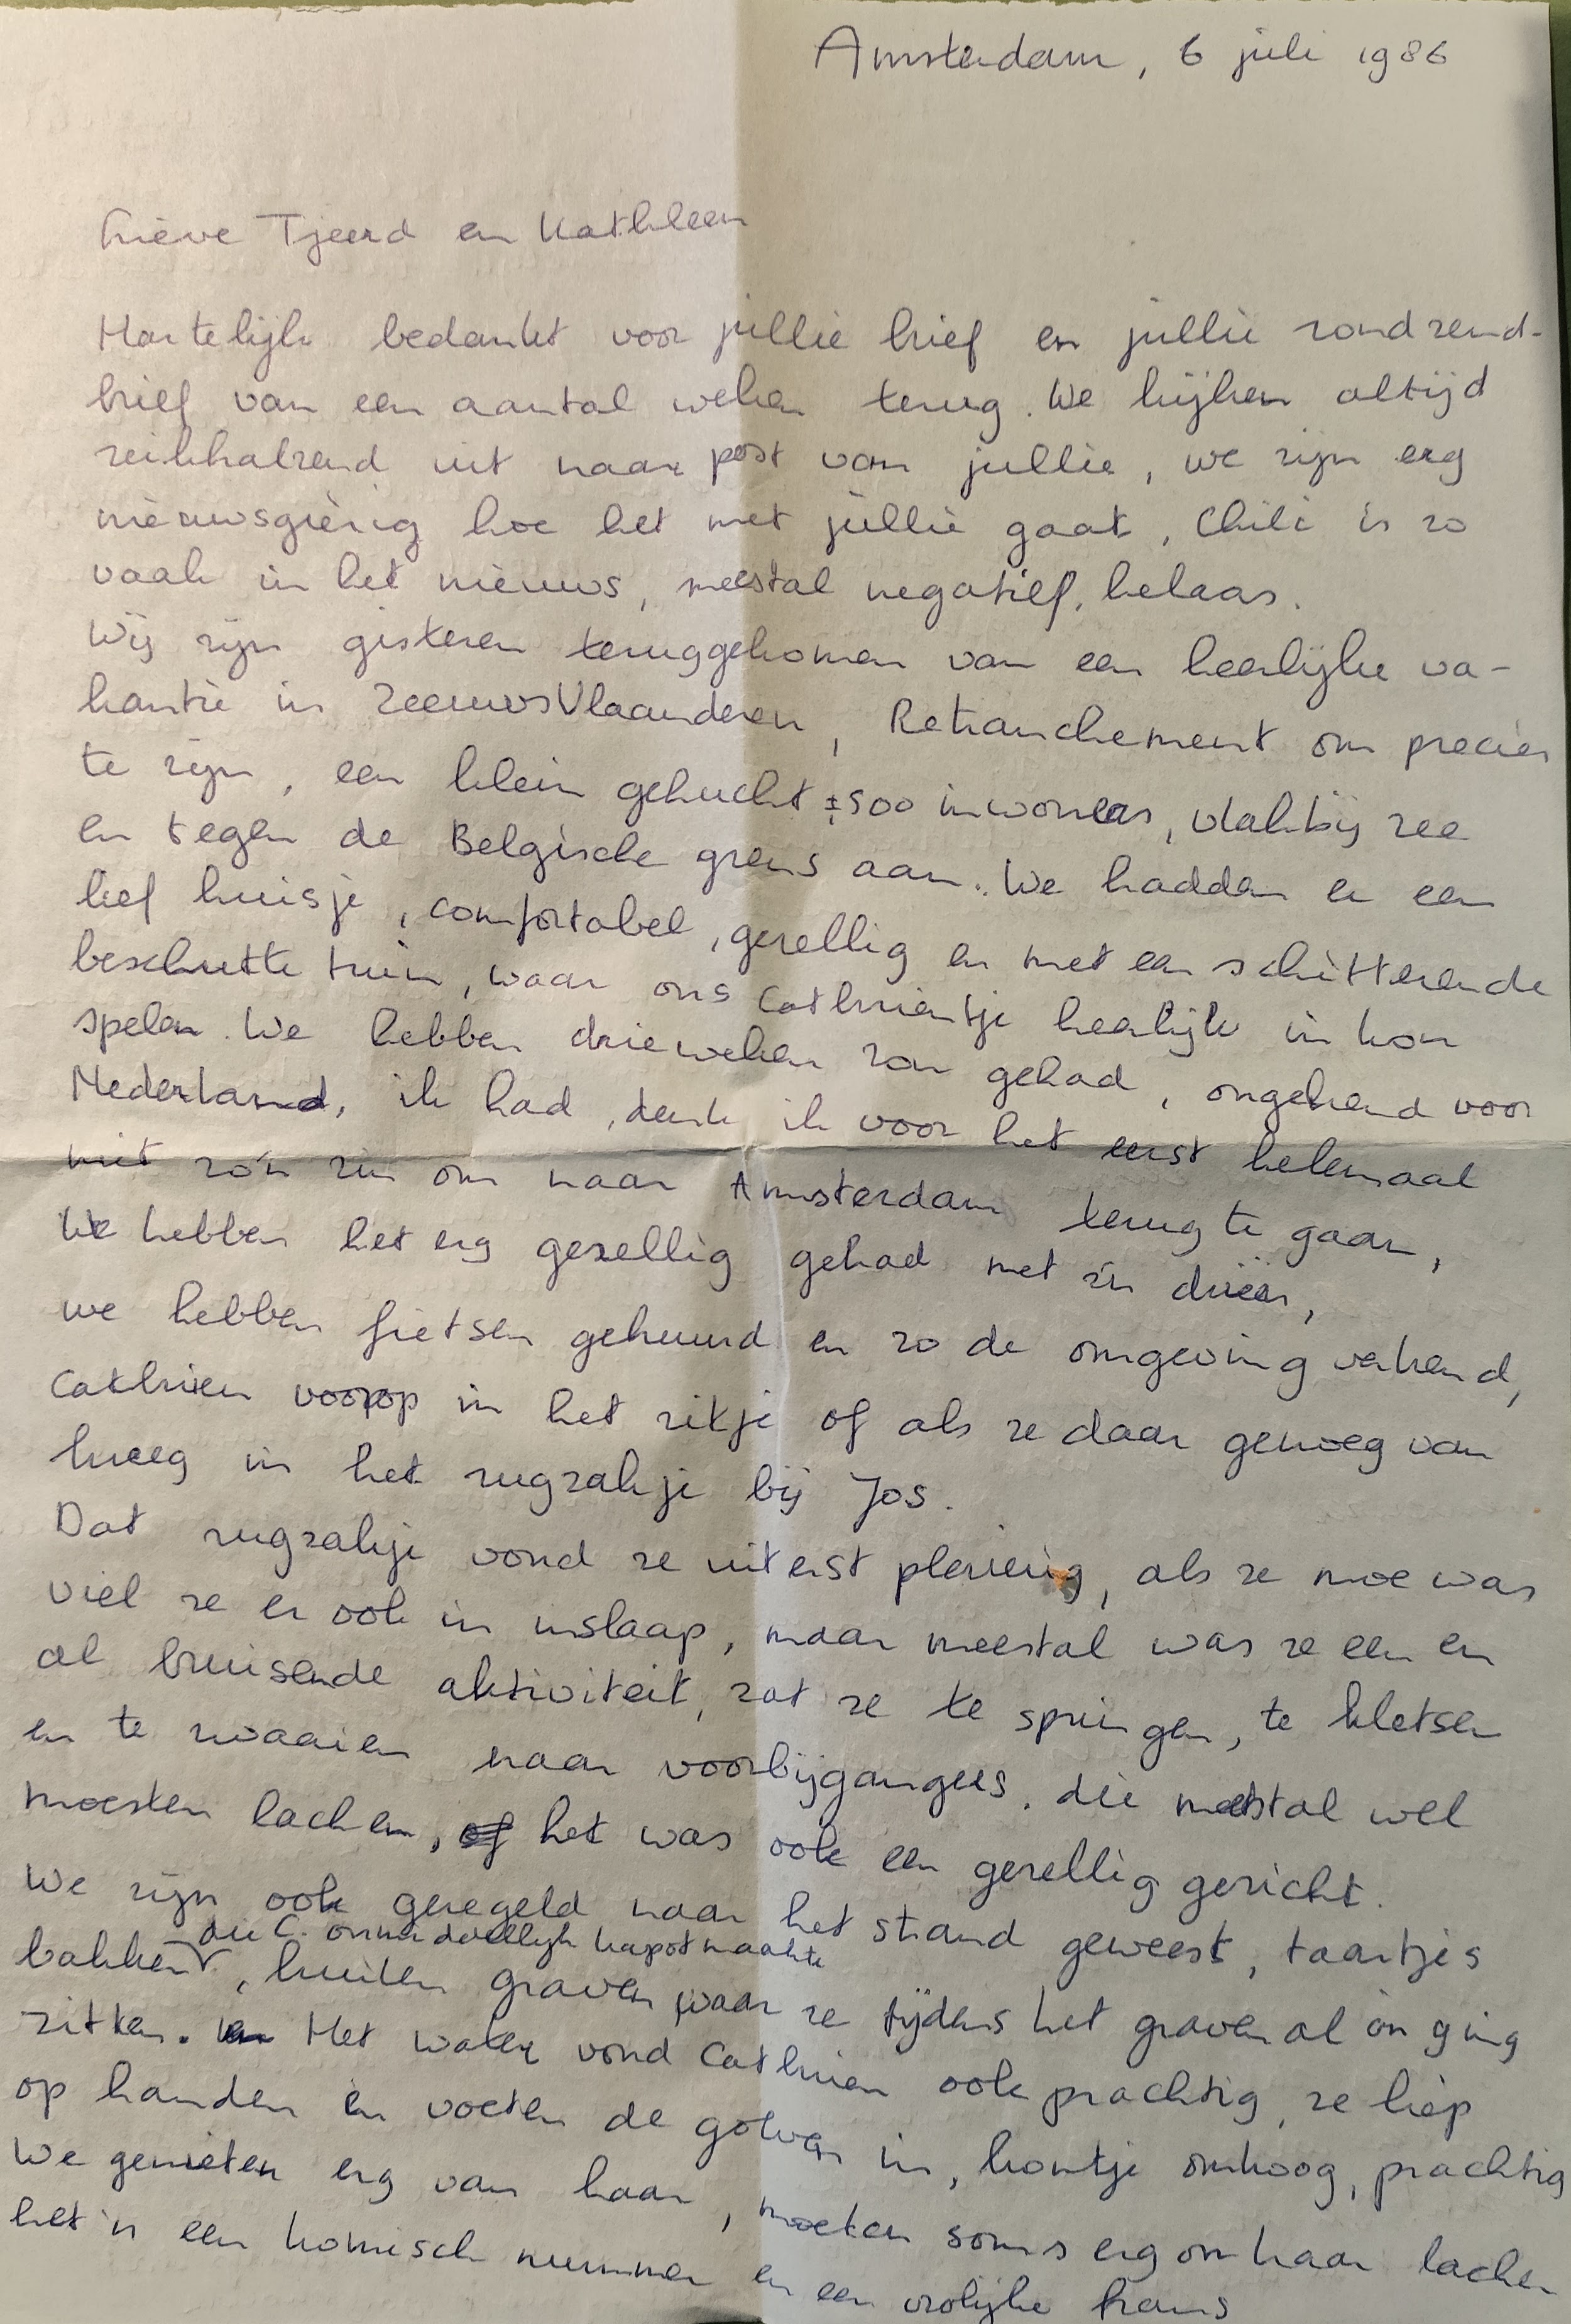 Amsterdam, 6 juli 1986
Lieve Tjeerd en Kathleen
Hartelijk bedankt voor jullie brief en jullie rondzend-
brief van een aantal weken terug. We kijken altijd
reikhalzend uit naar post van jullie, we zijn erg
nieuwsgierig hoe het met jullie gaat, Chili is zo
vaak in het nieuws, meestal negatief, helaas.
Wij zijn gisteren teruggekomen van een heerlijke va-
kantie in ZeeuwsVlaanderen, Retranchement om precies
te zijn, een klein gehucht ±500 inwoners, vlakbij zee
en tegen de Belgische grens aan. We hadden er een
lief huisje, comfortabel, gezellig en met een schitterende
beschutte tuin, waar ons Cathrientje heerlijk in kon
spelen. We hebben drie weken zon gehad, ongekend voor
Nederland, ik had, denk ik voor het eerst helemaal
niet zo'n zin om naar Amsterdam terug te gaan,
We hebben het erg gezellig gehad met z'n drieën,
we hebben fietsen gehuurd en zo de omgeving verkend,
Cathrien voorop in het zitje of als ze daar genoeg van
kreeg in het rugzakje bij Jos.
Dat rugzakje vond ze uiterst plezierig, als ze moe was
viel ze er ook in inslaap, maar meestal was ze een en
al bruisende aktiviteit, zat ze te springen, te kletsen
en te zwaaien naar voorbijgangers, die meestal wel
moesten lachen, of het was ook een gezellig gezicht.
We zijn ook geregeld naar het strand geweest, taartjes
die C. onmiddellijk kapot maakte
bakken, kuilen graven waar ze tijdens het graven al in ging
zitten. en Het water vond Cathrien ook prachtig, ze liep
op handen en voeten de golven in, kontje omhoog, prachtig
We genieten erg van haar, moeten soms erg om haar lachen
het is een komisch nummer en een vrolijke frans